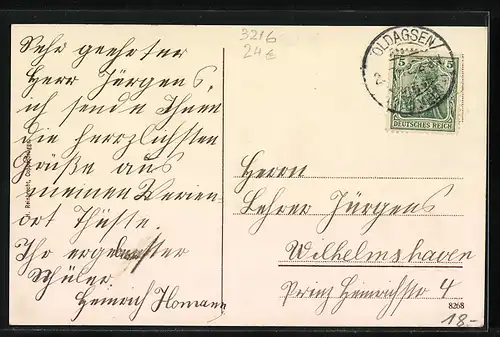 3216
24 €
Sehr geehrter
Herr Jürgens,
ich sende Ihnen
die herzlichsten
Grüße aus
meinem Ferien-
ort Thüste.
Ihr ergebenster
Schüler
Heinrich Homann
OLDAGSEN
5 5
DEUTSCHES REICH
Herrn
Lehrer Jürgens
Wilhelmshaven
Prinz Heinrichstr 4
8268
18.-